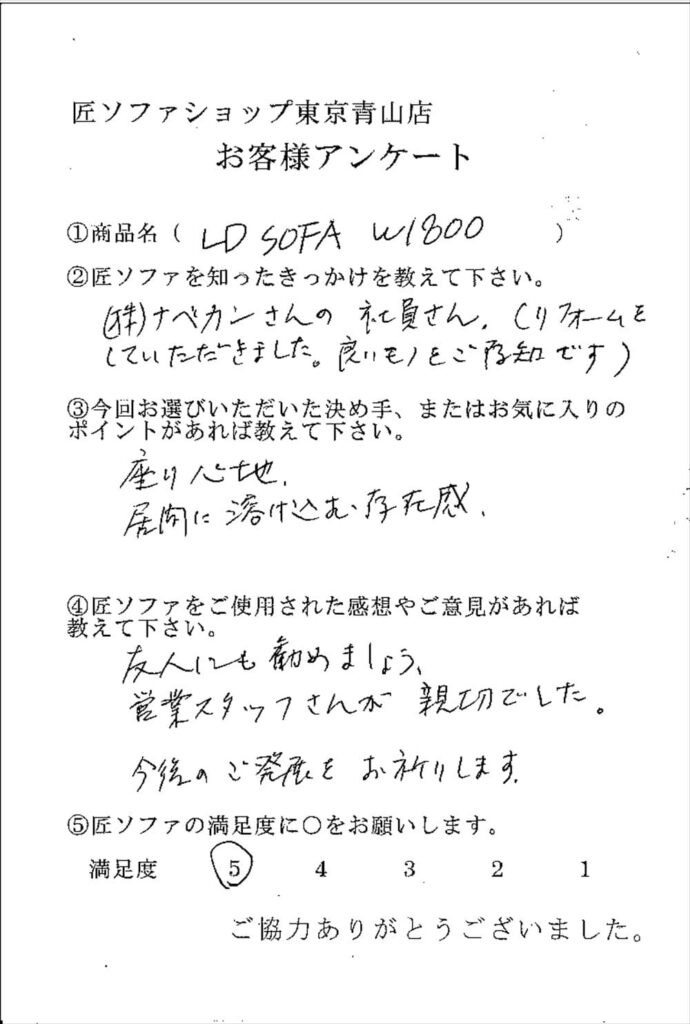 匠ソファショップ東京青山店
お客様アンケート
①商品名（ LD SOFA W1800 ）
②匠ソファを知ったきっかけを教えて下さい。
(株)ナベカンさんの社員さん.（リフォームを
していただきました。良いモノをご存知です）
③今回お選びいただいた決め手、またはお気に入りの
ポイントがあれば教えて下さい。
座り心地.
居間に溶け込む存在感.
④匠ソファをご使用された感想やご意見があれば
教えて下さい。
友人にも勧めましょう、
営業スタッフさんが親切でした。
今後のご発展をお祈りします.
⑤匠ソファの満足度に○をお願いします。
満足度 5 4 3 2 1
ご協力ありがとうございました。